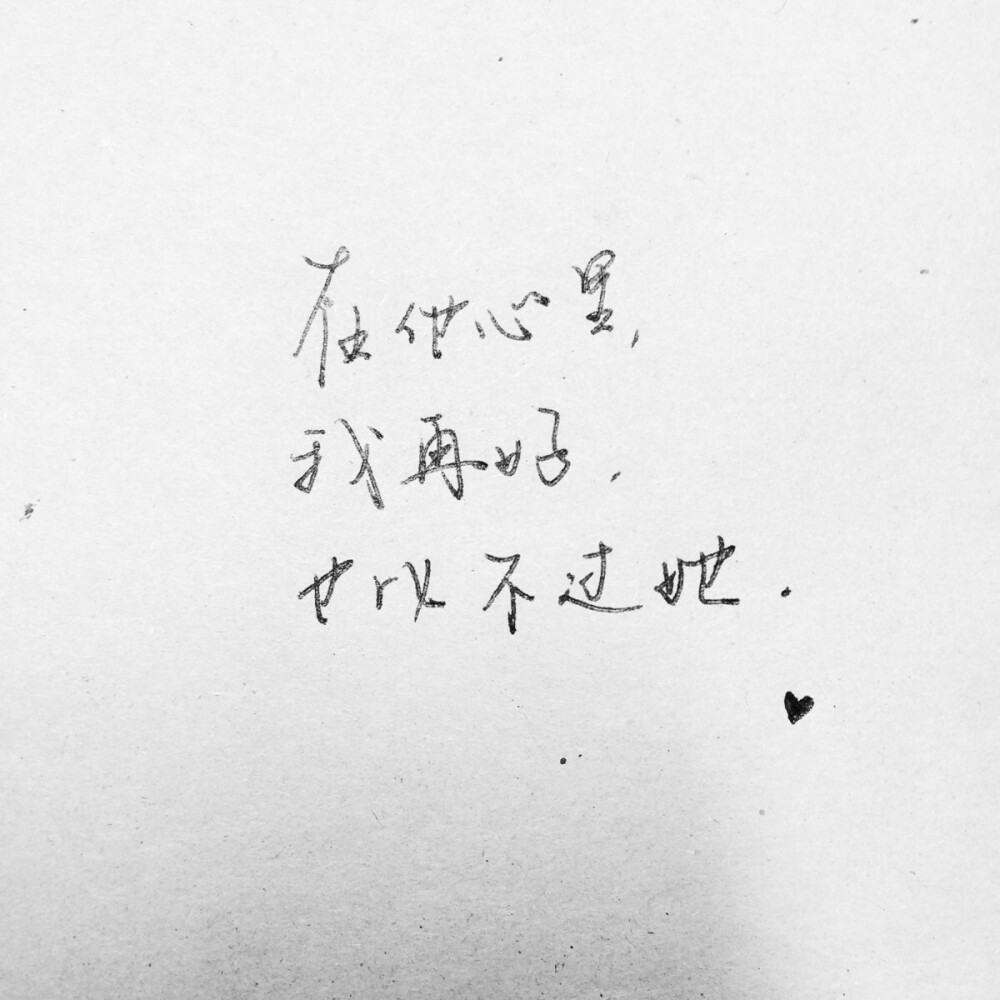 在他心里,
我再好,
也不过她.